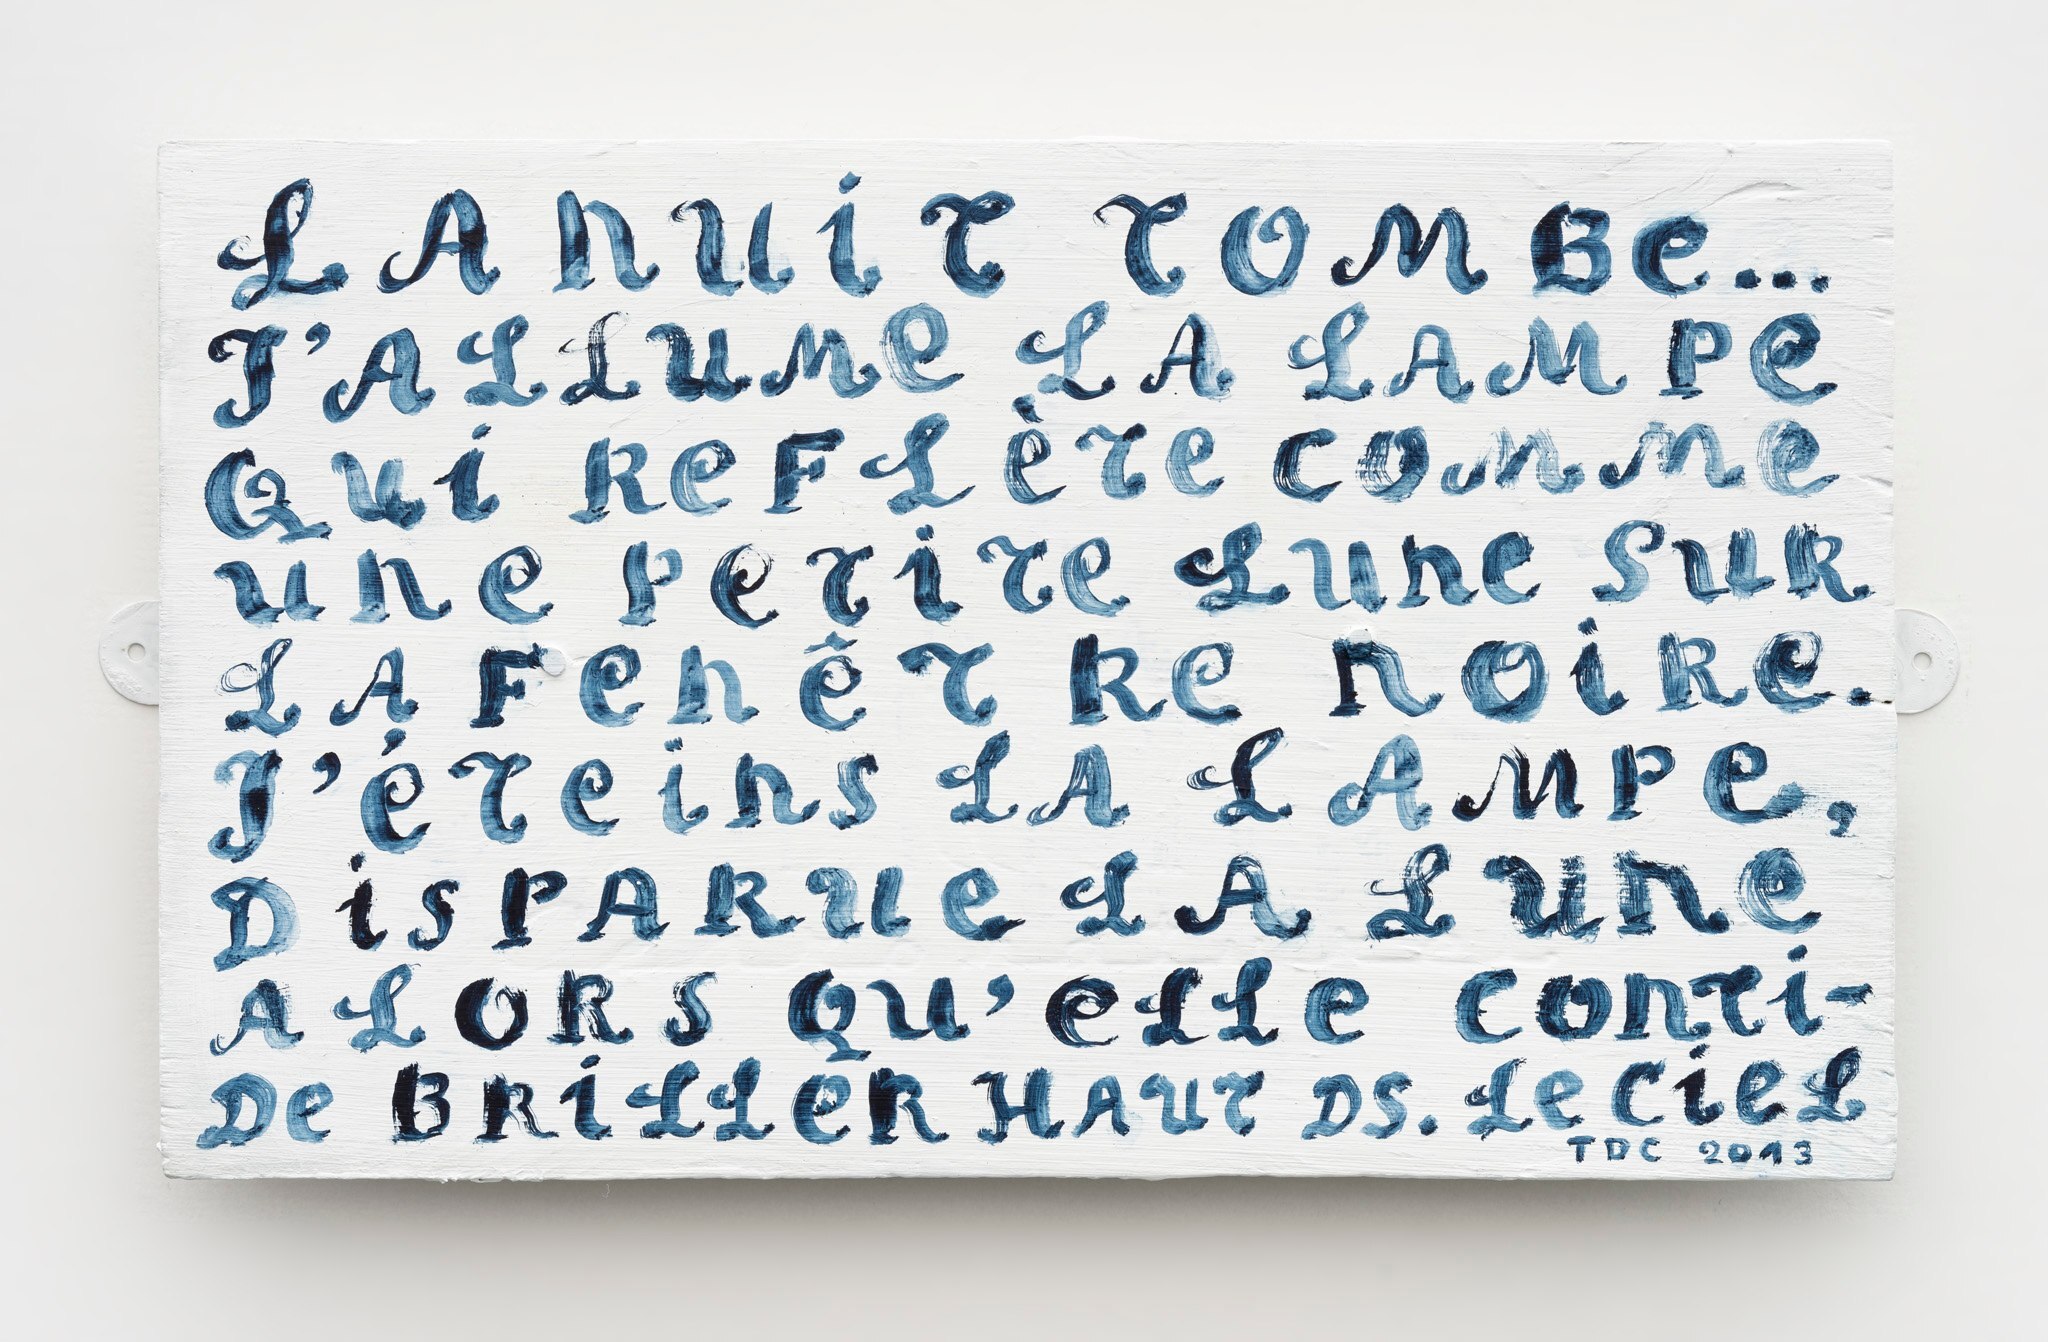 LA NUIT TOMBE...
J'ALLUME LA LAMPE
QUI REFLÈTE COMME
UNE PETITE LUNE SUR
LA FENÊTRE NOIRE.
J'ÉTEINS LA LAMPE,
DISPARUE LA LUNE
ALORS QU'ELLE CONTI-
DE BRILLER HAUT DS. LE CIEL
TDC 2013